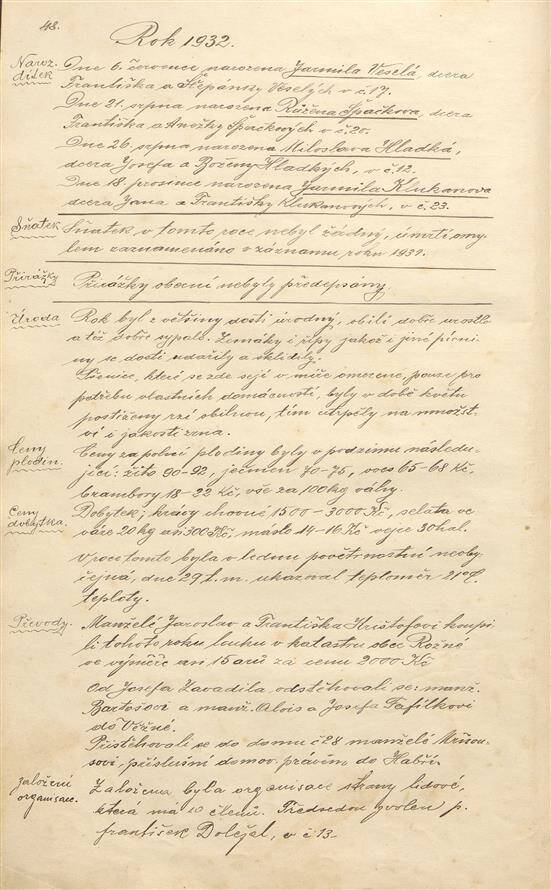 48.
Rok 1932.
Naroz. dítek
Dne 6. července narozena Jarmila Veselá, dcera
Františka a Štěpánky Veselých v č. 17.
Dne 21. srpna narozena Růžena Špačkova, dcera
Františka a Anežky Špačkových v č. 20.
Dne 26. srpna narozena Miloslava Hladká,
dcera Josefa a Boženy Hladkých, v č. 12.
Dne 18. prosince narozena Jarmila Klukanova
dcera Jana a Františky Klukanových, v č. 23.
Sňatek
Sňatek v tomto roce nebyl žádný, úmrtí omy-
lem zaznamenáno v záznamu roku 1931.
Přirážky
Přirážky obecní nebyly předepsány.
Úroda
Rok byl z většiny dosti úrodný, obilí dobře vrostlo
a též dobře sypalo. Zemáky i řepy jakož i jiné pícni-
ny se dosti udařily a sklidily.
Pšenice, které se zde sejí v míře omezené, pouze pro
potřebu vlastních domácností, byly v době květu
postiženy rzí obilnou, tím utrpěly na množst-
ví i jakosti zrna.
Ceny plodin.
Ceny za polní plodiny byly v podzimu následu-
jící: žito 90-92, ječmen 70-75, oves 65-68 Kč,
brambory 18-22 Kč, vše za 100 kg váhy.
Ceny dobytka.
Dobytek; krávy chovné 1500-3000 Kč, selata ve
váze 20 kg an 300 Kč, máslo 14-16 Kč vejce 30 hal.
V roce tomto byla v lednu povětrnost neoby-
čejná, dne 29 t. m. ukazoval teploměr 21° C.
teploty.
Převody.
Manželé Jaroslav a Františka Krištofovi koupi-
li tohoto roku louku v katastru obce Rožné
ve výměře an 15 arů za cenu 2000 Kč
Od Josefa Zavadila odstěhovali se: manž.
Bartošovi a manž. Alois a Josefa Fafílkovi
do Věžné.
Přistěhovali se do domu č 28 manželé Mrňou-
sovi, příslušní domov. právem do Habří.
založení organisace.
Založena byla organisace strany lidové,
která má 10 členů. Předsedou zvolen p.
František Doležal, v č 13.